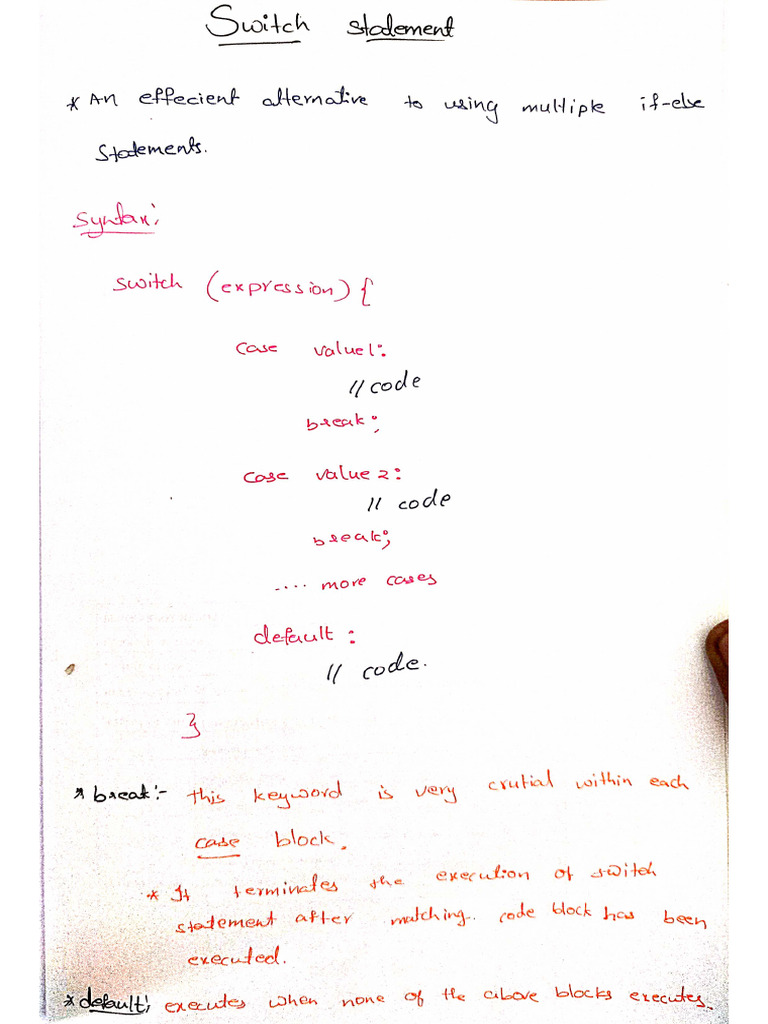 Switch statement
* An effecient alternative to using multiple if-else
statements.
Syntax:
switch (expression) {
case value1:
// code
break;
case value 2:
// code
break;
.... more cases
default :
// code.
}
* break:- this keyword is very crutial within each
case block.
* It terminates the execution of switch
statement after matching code block has been
executed.
* default: executes when none of the above blocks executes.